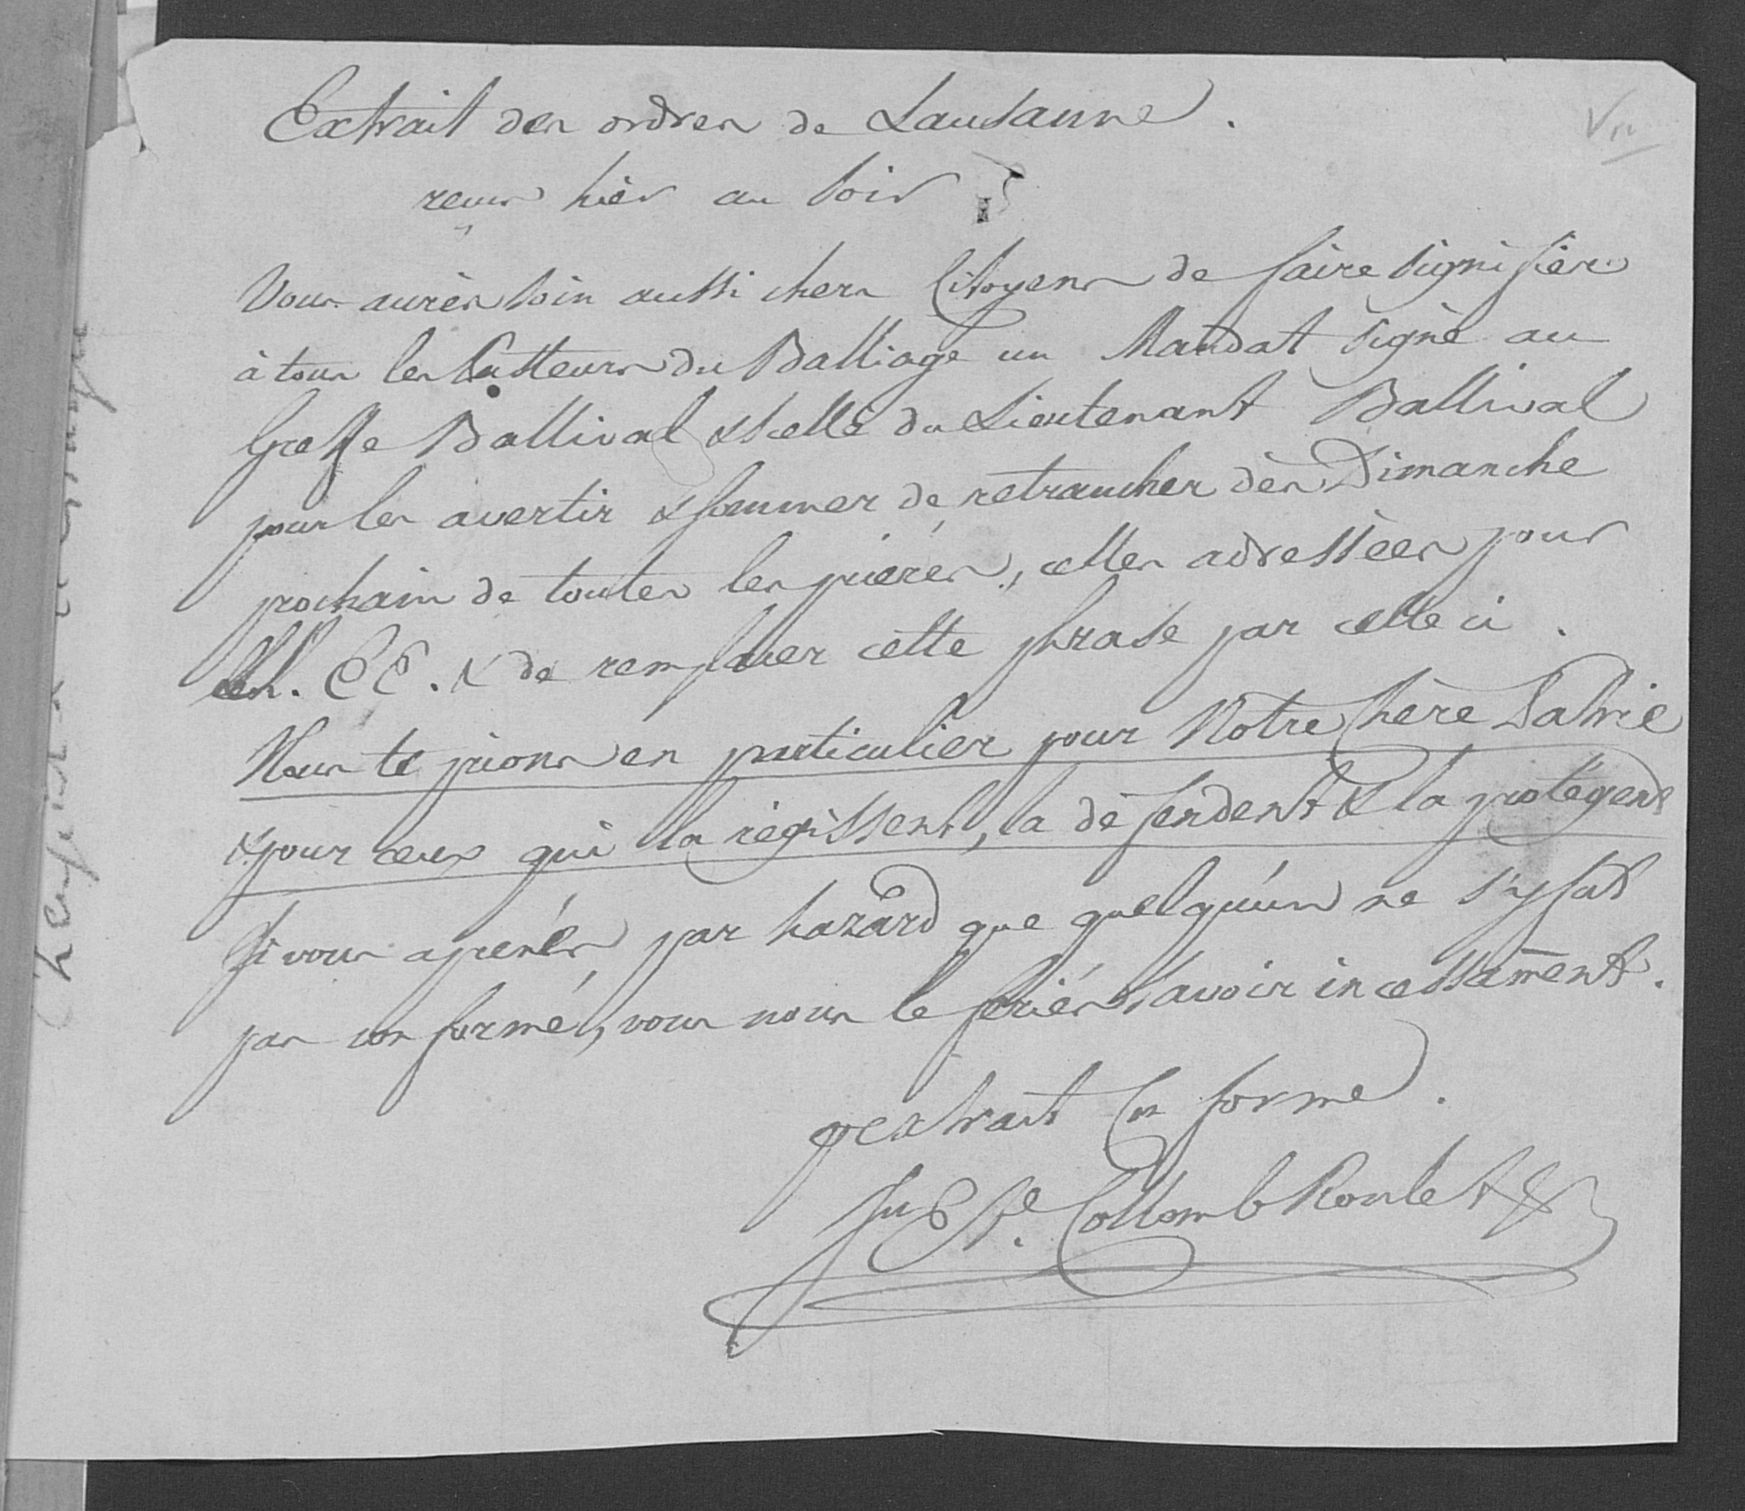 Extrait des ordres de Lausanne.
reçus hier au soir
Vous aurès soin aussi chers Citoyens de faire signifier
à tous les Pasteurs du Balliage un Mandat signé au
Greffe Ballival & scellé du Lieutenant Ballival
pour les avertir & sommer de retrancher dès Dimanche
prochain de toutes les prières, celles adressées pour
LL. EE. & de remplacer cette phrase par celle ci.
Nous te prions en particulier pour Notre Chère Patrie
& pour ceux qui la régissent, la défendent & la protégent
Si vous aprenés par hazard que quelqu'un ne s'y fut
pas conformé, vous nous le feriés savoir incessam̄ent.
pr extrait en forme.
Collomb Roulet